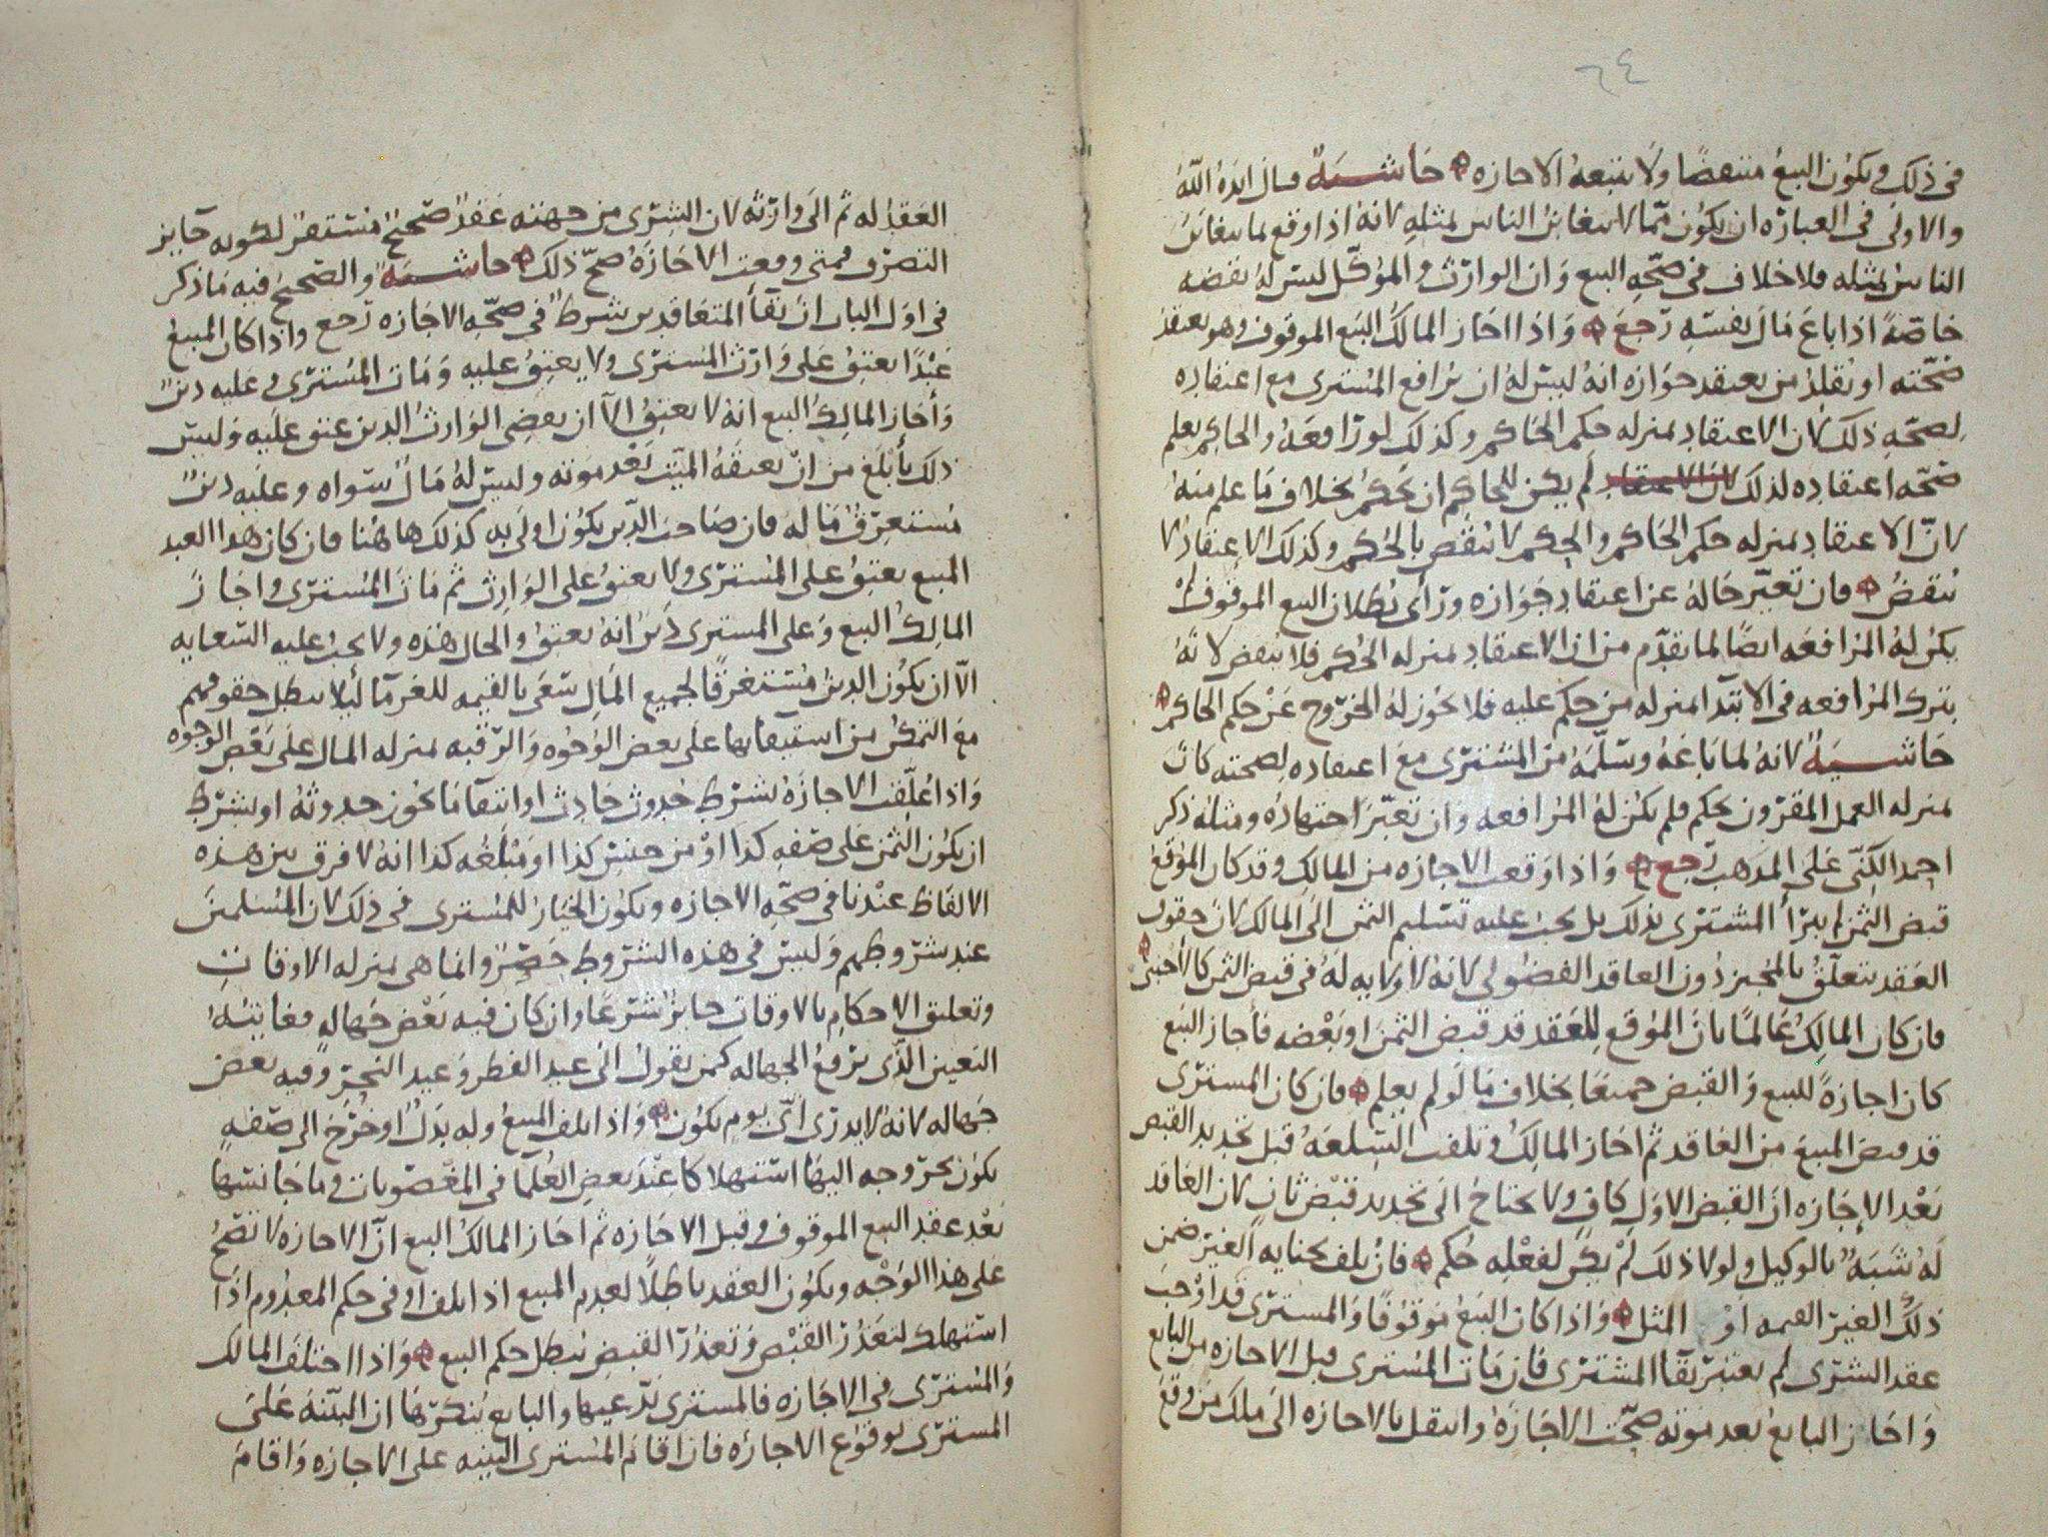 ٦٤
في ذلك ويكون البيع منتقضًا ولا تتبعه الاجازه حاشية قال ايده الله
والاولى في العباره ان يكون مما لا يتغابن الناس لمثله لانه اذا وقع بما يتغابن
الناس بمثله فلا خلاف في صحه البيع وان الوارث والموكل ليس له نقضه
خاصة اذا باع مال نفسه رجع واذا اجاز المالك البيع الموقوف وهو يعتقد
صحته او يقلد من يعتقد جوازه انه ليس له ان يرافع المشترى مع اعتقاده
لصحه ذلك لان الاعتقاد بمنزله حكم الحاكم وكذلك لو رافعه والحاكم يعلم
صحه اعتقاده لذلك لان الاعتقاد لم يكن للحاكم ان يحكم بخلاف ما علم منه
لانّ الاعتقاد بمنزله حكم الحاكم والحكم لا ينقض بالحكم وكذلك الاعتقاد لا
ينقض فان تغيّر حاله عن اعتقاد جوازه ورأى بطلان البيع الموقوف لم
يكن له المرافعه ايضًا لما تقدم من ان الاعتقاد بمنزله الحكم فلا ينقض لانه
بترك المرافعه في الابتدا بمنزله من حكم عليه فلا يجوز له الخروج عن حكم الحاكم
حاشية لانه لما باعه وسلمه من المشترى مع اعتقاده لصحته كان
بمنزله العمل المقرون بحكم فلم يكن له المرافعه وان تغيّر اجتهاده ومثله ذكر
احمد الكنّي على المذهب رجع واذا وقعت الاجازه من المالك وقد كان الموقع
قبض الثمن لم يبرأ المشترى بذلك بل يجب عليه تسليم الثمن الى المالك لان حقوق
العقد تتعلق بالمجيز دون العاقد الفضولى لانه لا ولايه له في قبض الثمن كالاجنبى
فان كان المالك عالمًا بان الموقع للعقد قد قبض الثمن او بعضه فأجاز البيع
كان اجازة للبيع والقبض جميعًا بخلاف ما لو لم يعلم فان كان المشترى
قد قبض المبيع من العاقد ثم اجاز المالك وتلفت السلعه قبل تجديد القبض
بعد الاجازه ان القبض الاول كاف ولا يحتاج الى تجديد قبض ثان لان العاقد
له شبه بالوكيل ولولا ذلك لم يكن لفعله حكم فان تلف بجنايه الغير ضمن
ذلك الغير القيمه او المثل واذا كان البيع موقوفًا والمشترى قد اوجب
عقد الشرى لم يعتبر بقا المشترى فان مات المشترى قبل الاجازه من البايع
واجاز البايع بعد موته صحت الاجازه وانتقل بالاجازه الى ملك من وقع
العقد له ثم الى وارثه لان الشرى من جهته عقد صحيح مستقر لكونه جايز
التصرف فمتى وقعت الاجازه صح ذلك حاشية والصحيح فيه ما ذكر
في اول الباب ان بقا المتعاقدين شرط في صحه الاجازه رجع واذا كان المبيع
عبدًا يعتق على وارث المشترى ولا يعتق عليه ومات المشترى وعليه دين
وأجاز المالك البيع انه لا يعتق الا ان يقضى الوارث الدين عتق عليه وليس
ذلك بأبلغ من ان يعتقه الميت بعد موته وليس له مال سواه وعليه دين
مستغرق ماله فان صاحب الدين يكون اولى به كذلك هاهنا فان كان هذا العبد
المبيع يعتق على المشترى ولا يعتق على الوارث ثم مات المشترى واجاز
المالك البيع وعلى المشترى دين انه يعتق والحال هذه ولا يجب عليه السعايه
الا ان يكون الدين مستغرقًا لجميع المال سعى بالقيمه للغرما ليلا يبطل حقوقهم
مع التمكن من استيفايها على بعض الوجوه والرقبه بمنزله المال على بعض الوجوه
واذا علقت الاجازه بشرط حدوث حادث او انتفا ما يجوز حدوثه او بشرط
ان يكون الثمن على صفه كذا او من جنس كذا او مبلغه كذا انه لا فرق بين هذه
الالفاظ عندنا في صحه الاجازه ويكون الخيار للمشترى في ذلك لان المسلمين
عند شروطهم وليس في هذه الشروط حصر وانما هى بمنزله الاوقات
وتعليق الاحكام بالاوقات جايز شرعًا وان كان فيه بعض جهالة فغايته
التعيين الذى يرفع الجهاله كمن يقول الى عيد الفطر وعيد النحر وفيه بعض
جهاله لانه لا يدرى اى يوم يكون واذا تلف المبيع وله بدل او خرج الى صفه
يكون بخروجه اليها استهلاكا عند بعض العلما في المغصوبات وما جانسها
بعد عقد البيع الموقوف وقبل الاجازه ثم اجاز المالك البيع انّ الاجازه لا تصح
على هذا الوجه ويكون العقد باطلًا لعدم المبيع اذا تلف او في حكم المعدوم اذا
استهلك لتعذر القبض وتعذر القبض يبطل حكم البيع واذا اختلف المالك
والمشترى في الاجازه فالمشترى يدعيها والبايع ينكرها ان البينه على
المشترى لوقوع الاجازه فان اقام المشترى البينه على الاجازه واقام